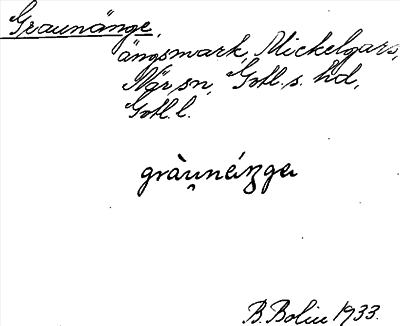 Graunänge,
ängsmark, Mickelgårs,
När, sn, Gotl. s. hd,
Gotl. l.
gràu̯néŋgɐ
B. Bolin 1933.